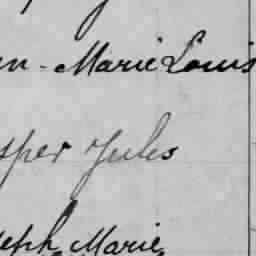 en-Marie Louis
sper Jules
seph Marie